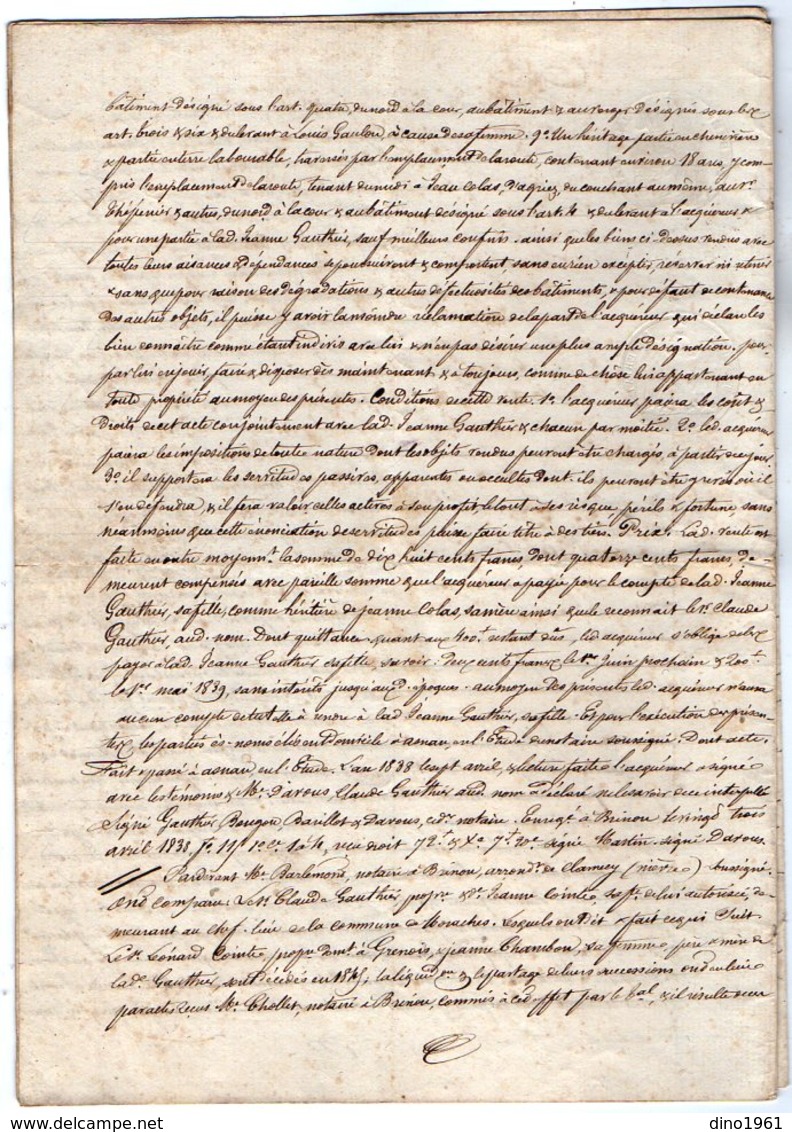 bâtiment désigné sous l'art. quatre, du nord à la cour, au bâtiment & au verger désignés sous les
art. trois & six & du levant à Louis Gaulon, à cause de sa femme. 9° Un héritage partie en chenevière
& partie en terre labourable, traversés par l'emplacement de la route, contenant environ 18 ares, y com-
pris l'emplacement de la route, tenant du midi à Jean Colas, du couchant au même, au sr.
Thépenier & autres, du nord à la cour & au bâtiment désigné sous l'art. 4 & du levant à l'acquéreur, &
pour une partie à lad. Jeanne Gauthier, sauf meilleurs confins. ainsi que les biens ci-dessus vendus avec
toutes leurs aisances & dépendances se poursuivent & comportent, sans en rien excepter, réserver ni retenir
& sans que pour raison des dégradations & autres défectuosités des bâtiments, & pour défaut de contenance
des autres objets, il puisse y avoir la moindre réclamation de la part de l'acquéreur qui déclare les
bien connaître comme étant indivis avec lui & n'en pas désirer une plus ample désignation. pour
par lui en jouir, faire & disposer dès maintenant & à toujours, comme de chose lui appartenant en
toute propriété au moyen des présentes. Conditions de cette vente. 1° l'acquéreur paiera les coût &
droits de cet acte conjointement avec lad. Jeanne Gauthier & chacun par moitié. 2° led. acquéreur
paiera les impositions de toute nature dont les objets vendus peuvent être chargés à partir de ce jour.
3° il supportera les servitudes passives, apparentes ou occultes dont ils peuvent être grevés où il
s'en défendra, & il fera valoir celles actives à son profit le tout à ses risque périls & fortune, sans
néanmoins que cette énonciation de servitudes puisse faire titre à des tiers. Prix. Lad. vente est
faite en outre moyennt. la somme de dix huit cents francs, dont quatorze cents francs, de-
meurent compensés avec pareille somme que l'acquéreur a payée pour le compte de lad. Jeanne
Gauthier, sa fille, comme héritière de jeanne Colas, sa mère ainsi que le reconnait le sr. Claude
Gauthier, aud. nom. Dont quittance. quant aux 400f. restant dûs, led. acquéreur s'oblige de les
payer à lad. Jeanne Gauthier sa fille, savoir: deux cents francs le 1er. Juin prochain & 200f.
le 1er. mai 1839, sans intérêts jusqu'auxd. époques. au moyen des présentes led. acquéreur n'aura
aucun compte de tutelle à rendre à lad. Jeanne Gauthier, sa fille. Et pour l'exécution des présen-
tes, les parties ès-noms élisent domicile à asnan en l'Etude du notaire soussigné. Dont acte.
Fait & passé à asnan en l'Etude. L'an 1838 le sept avril, & lecture faite l'acquéreur a signé
avec les témoins & Me. Davous, Claude Gauthier aud. nom a déclaré ne le savoir de ce interpellé.
Signé Gauthier, Bougon, Barillot & Davous, ce dr. notaire. Enregé. à Brinon le vingt trois
avril 1838, fo. 11, ro. Cs. 1 à 4, reçu droit 72f. & Xe. 7f. 20c. signé Martin. signé Davous.
Pardevant Me. Barlemont, notaire à Brinon, arrondt. de Clamecy (nièvre) soussigné.
Ont comparu: Le Sr. Claude Gauthier, propre. & De. Jeanne Cointe, sa fe. de lui autorisée, de-
meurant au chef-lieu de la commune de Moraches. Lesquels ont Dit & fait ce qui suit.
Le Sr. Léonard Cointe, propre. demt. à Grenois, & jeanne Chambon, sa femme, père & mère de
la de. Gauthier, sont décédés en 1845; la liquidon. & le partage de leurs successions ont eu lieu
par actes reçus Me. Chollet, notaire à Brinon, commis à cet effet par le tal, & il résulte de ces
dino1961